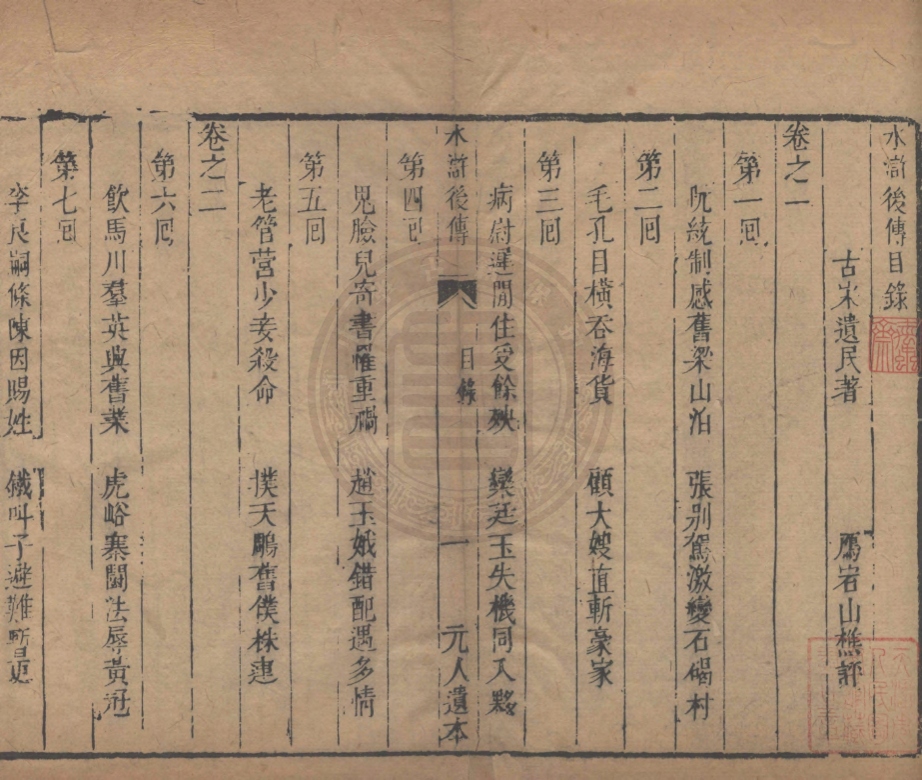 水滸後傳目錄
古宋遺民著　鴈宕山樵評
卷之一
第一囘
阮統制感舊梁山泊　張別駕激變石碣村
第二囘
毛孔目橫吞海貨　顧大嫂直斬豪家
第三囘
病尉遲閒住受餘殃　欒廷玉失機同入夥
水滸後傳　目錄　一　元人遺本
第四囘
鬼臉兒寄書罹重禍　趙玉娥錯配遇多情
第五囘
老管營少妾殺命　撲天鵰舊僕株連
卷之二
第六囘
飮馬川羣英興舊業　虎峪寨鬭法辱黃冠
第七囘
李良嗣條陳因賜姓　鐵叫子避難暫更